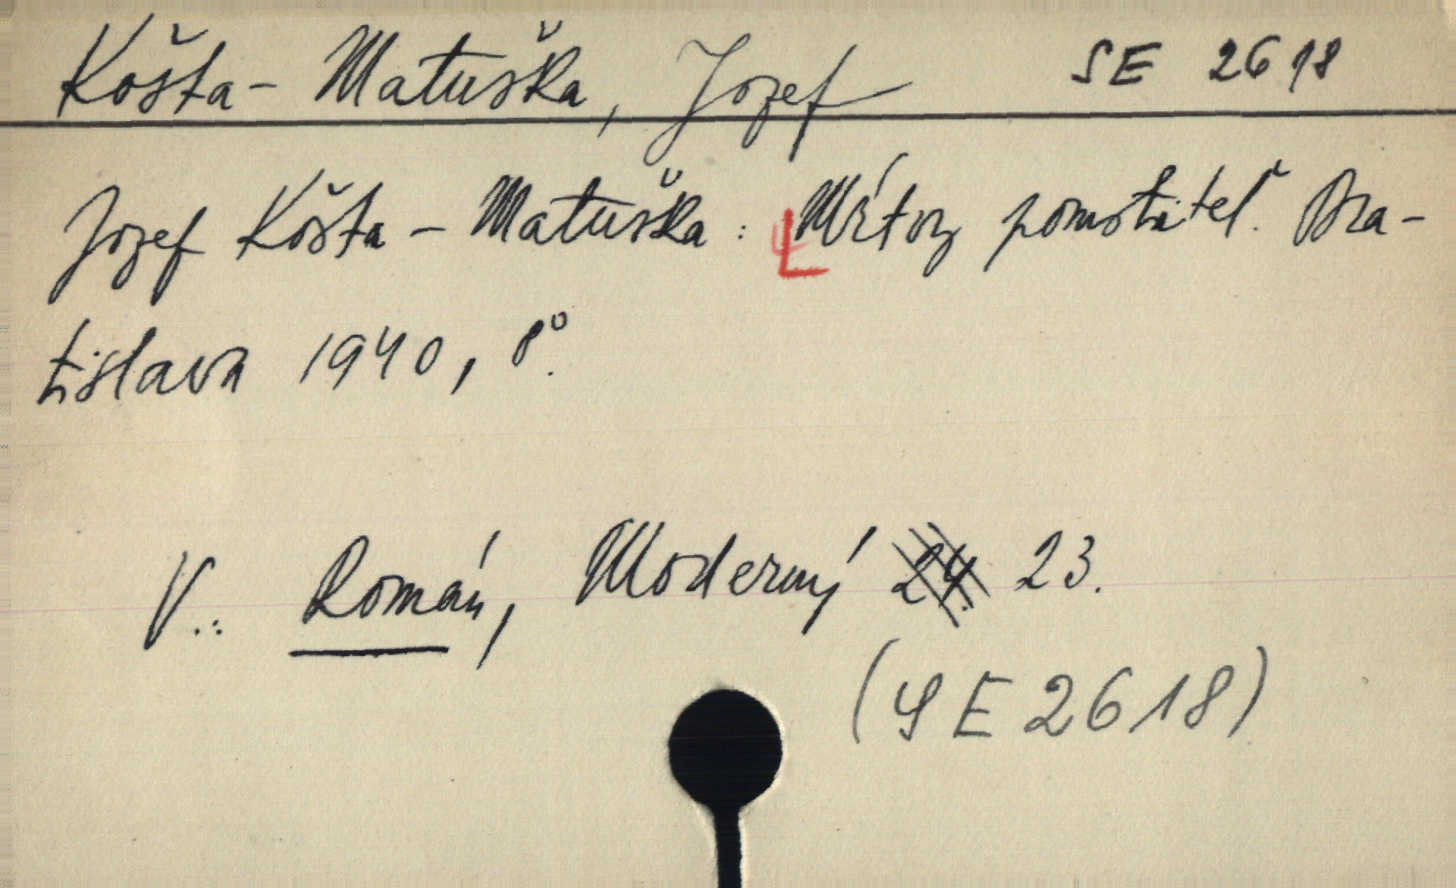 Košta-Matuška, Jozef SE 2618
Jozef Košta-Matuška: Mŕtvy pomstiteľ. Bra-
tislava 1940, 8°.
V.: Román, Moderný 24. 23.
(SE 2618)